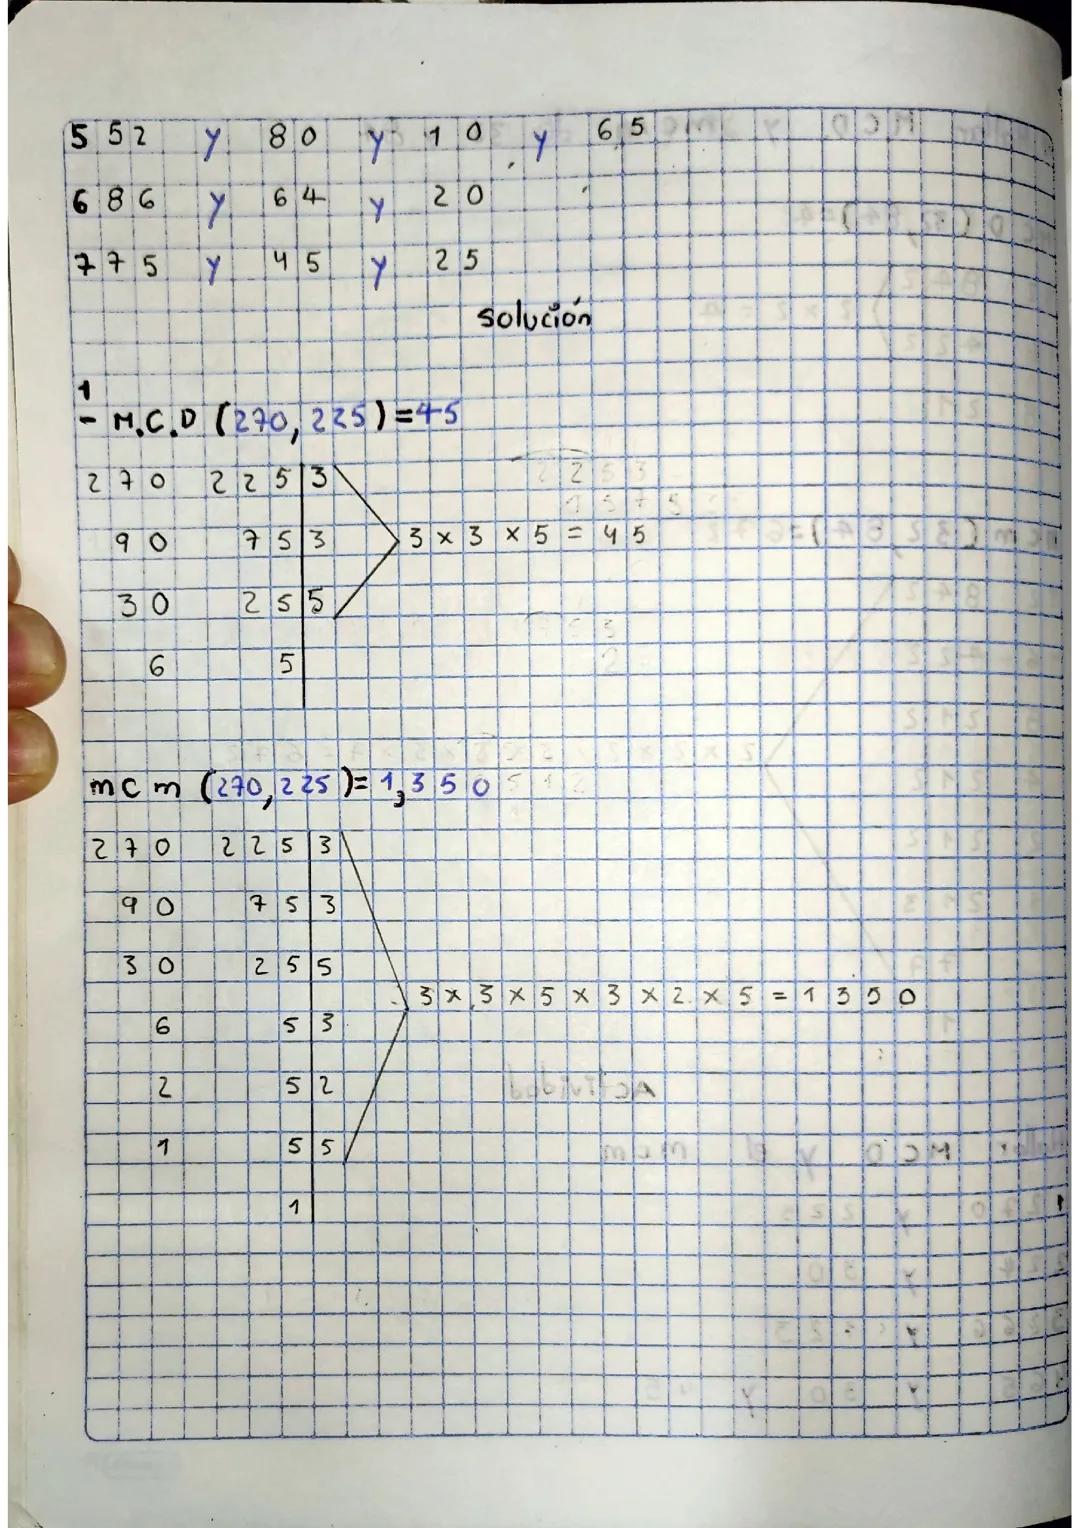 5 52 y 80 y 10 y 65
6 86 y 64 y 20
7 75 y 45 y 25
solución
1
- M.C.D (270, 225) = 45
270 225 3
90 75 3 3 x 3 x 5 = 45
30 25 5
6 5
mcm (270, 225) = 1,350
270 225 3
90 75 3
30 25 5
3 x 3 x 5 x 3 x 2 x 5 = 1350
6 5 3
2 5 2
1 5 5
1